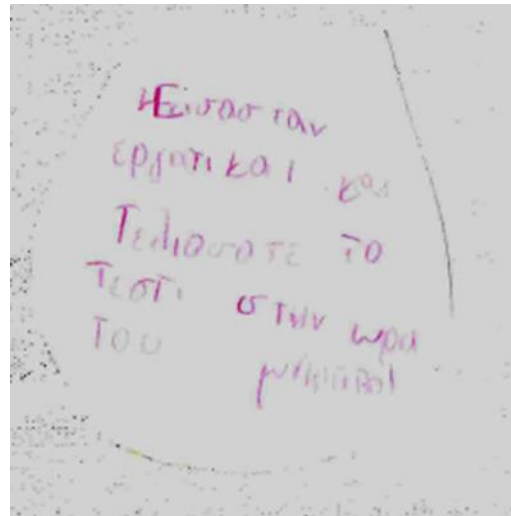 Εισασταν
εργατικοι και
Τελιοσατε το
Τεστι στην ωρα
Του